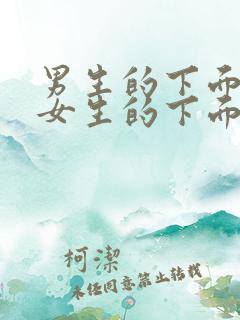 男生的下面
女生的下面
柯潔
未经同意禁止转载